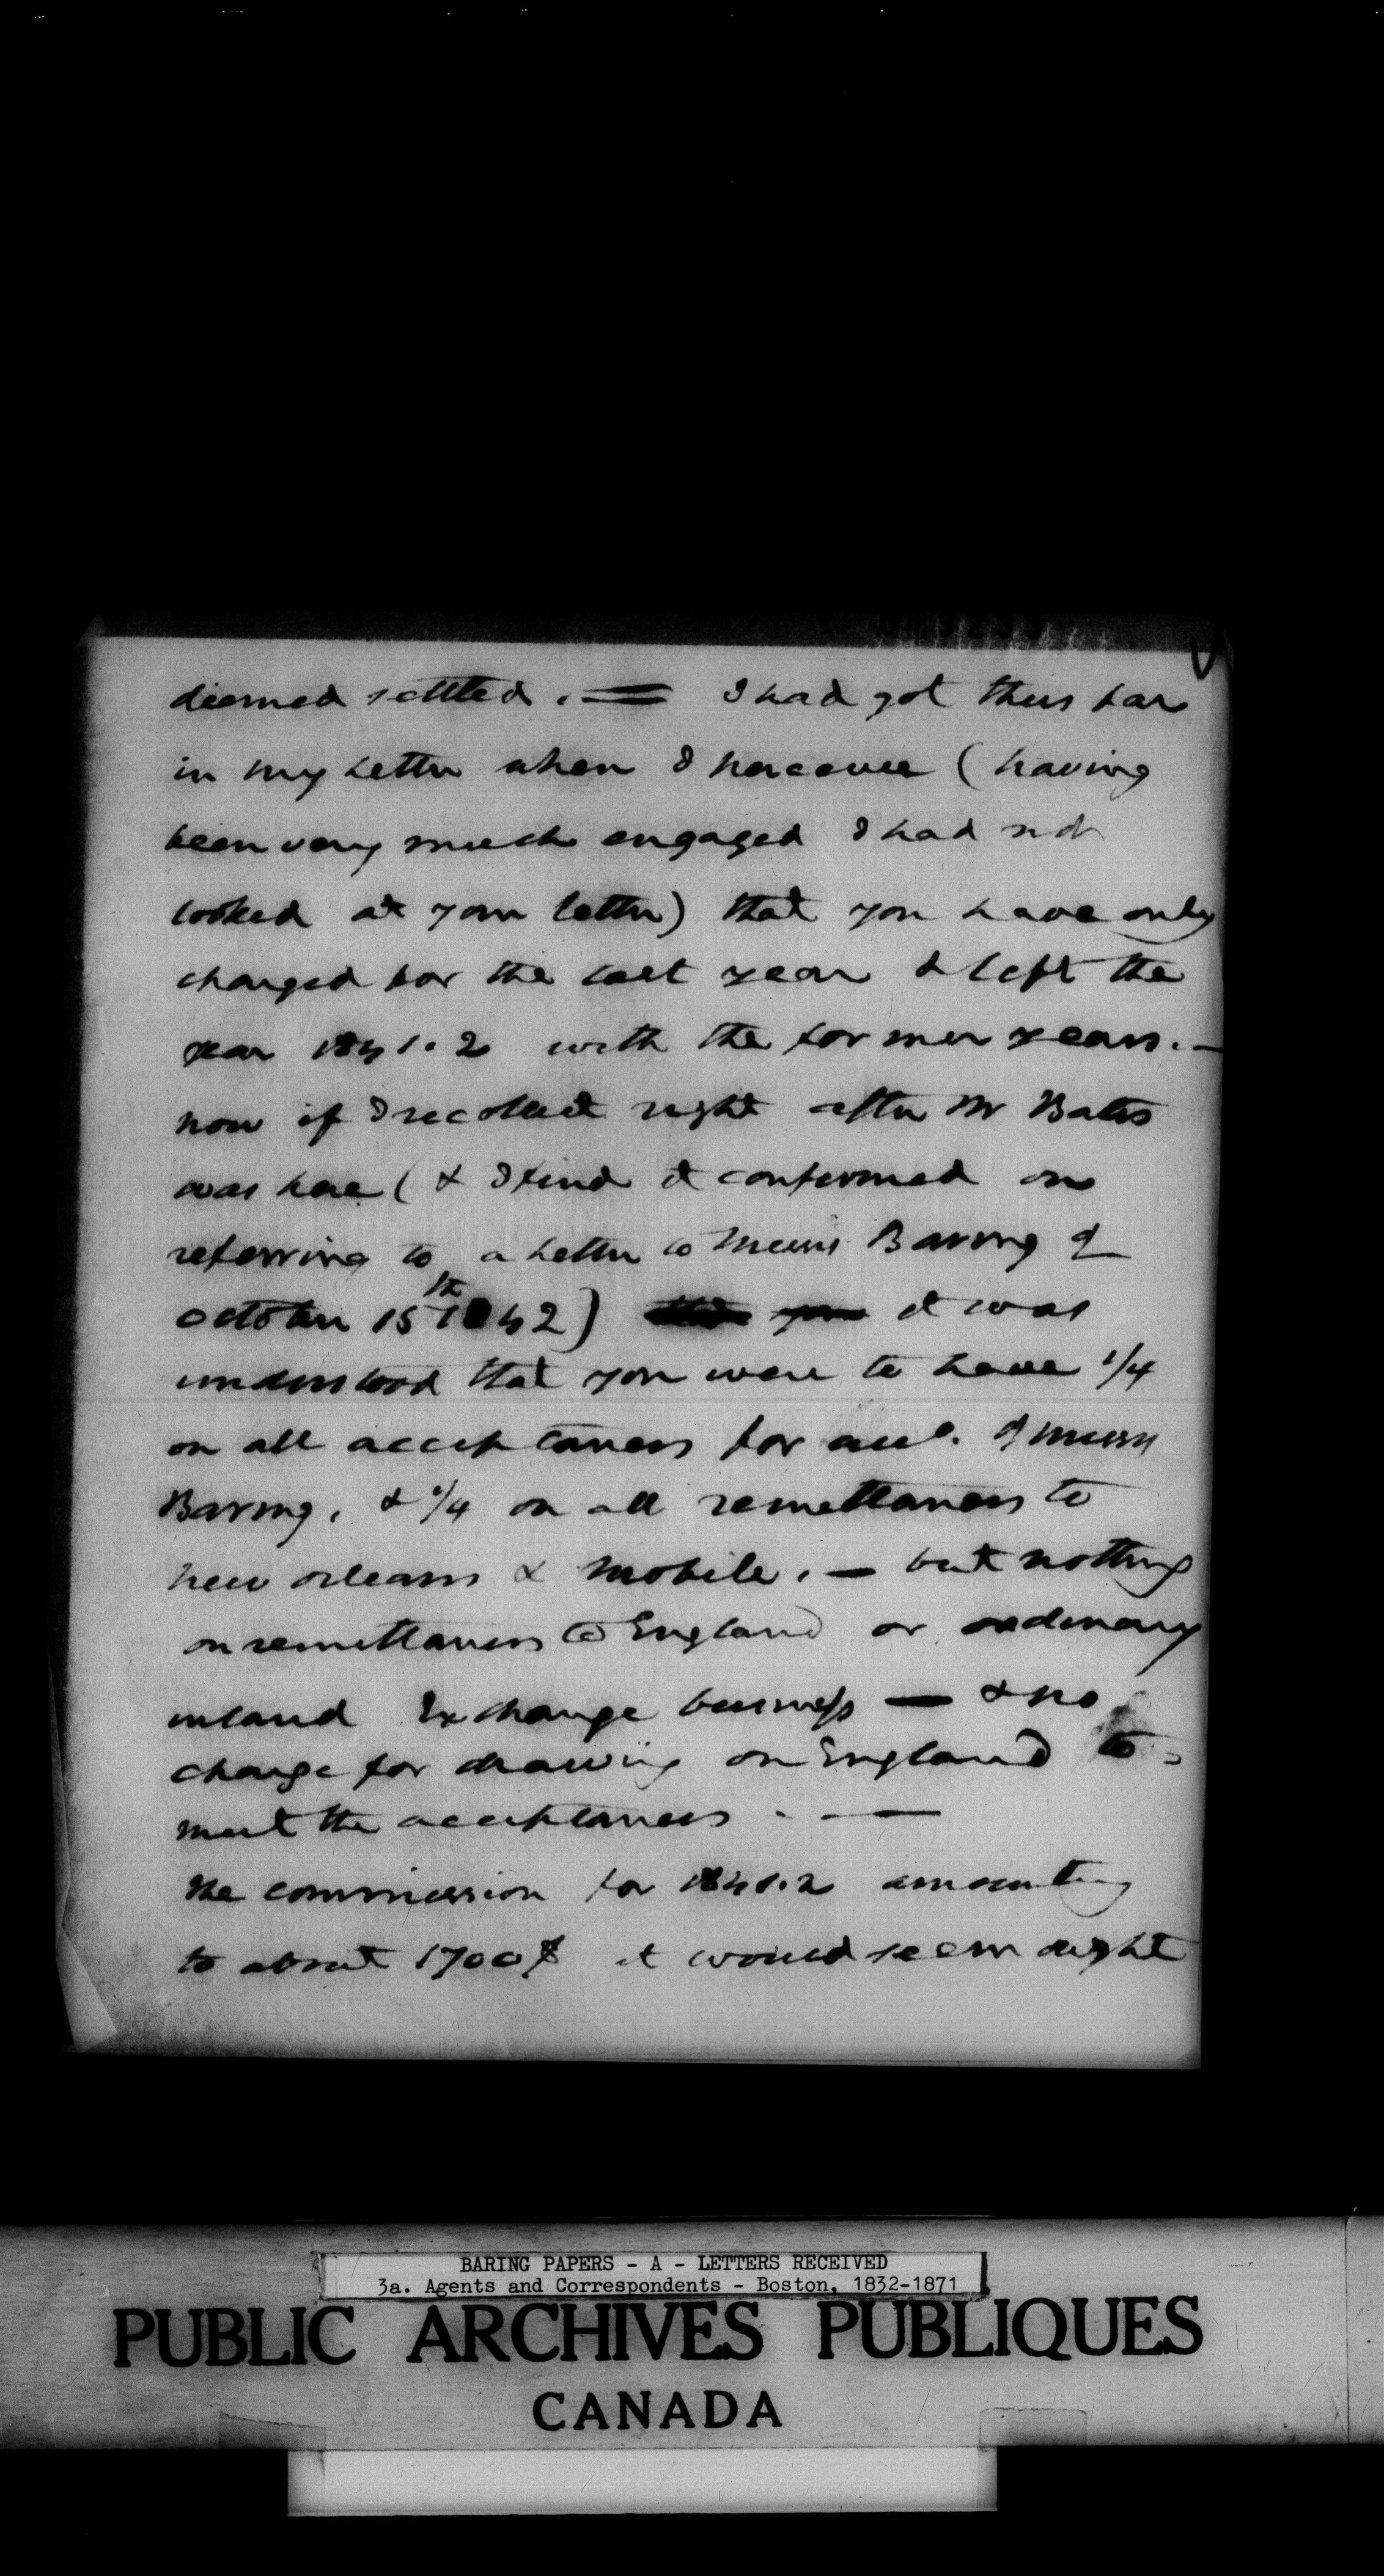 deemed settled. — I had got thus far
in my letter when I perceive (having
been very much engaged I had not
looked at your letter) that you have only
charged for the last year & left the
year 1841.2 with the former years. —
now if I recollect right after Mr Bates
was here (& I find it confirmed on
referring to a letter to Messrs Baring of
October 15th 1842) it was
understood that you were to have 1/4
on all acceptances for acco. of Messrs
Baring, & 1/4 on all remittances to
New Orleans & Mobile. — but nothing
on remittances to England or ordinary
inland Exchange business — & no
charge for drawing on England to
meet the acceptances. —
the commission for 1841.2 amounting
to about 1700$ it would seem right
BARING PAPERS - A - LETTERS RECEIVED
3a. Agents and Correspondents - Boston, 1832-1871
PUBLIC ARCHIVES PUBLIQUES
CANADA